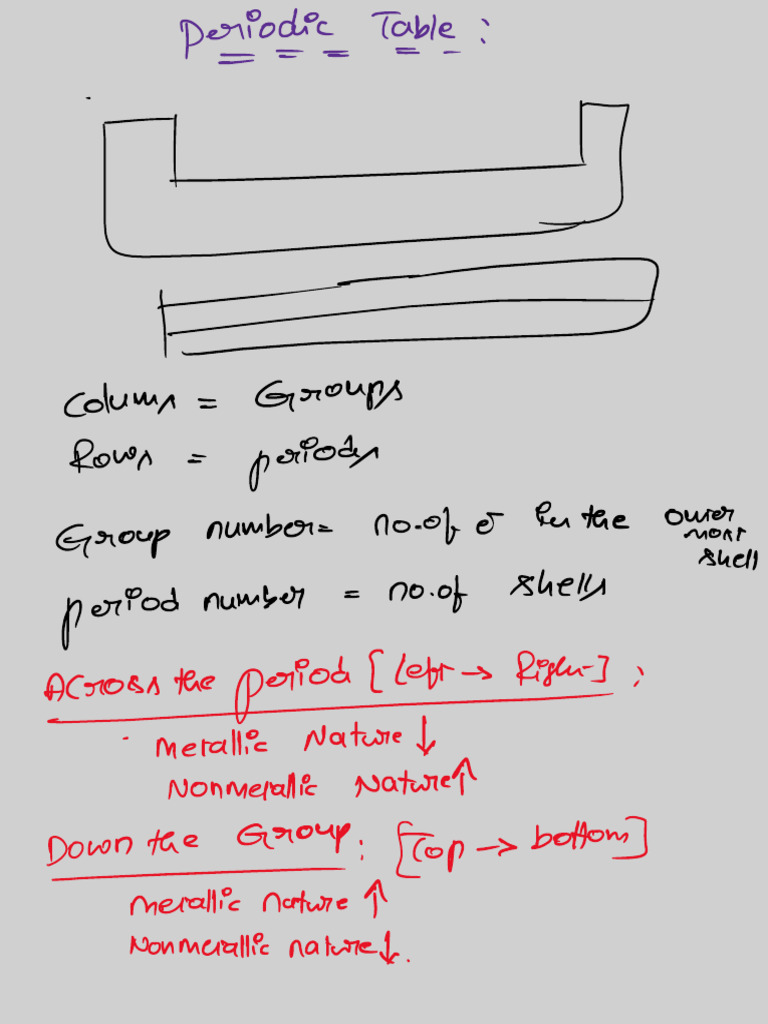 Periodic Table :
Columns = Groups
Rows = periods
Group number = no. of e⁻ in the outer most shell
period number = no. of shells
Across the period [Left → Right] :
Metallic Nature ↓
Nonmetallic Nature ↑
Down the Group : [Top → bottom]
Metallic nature ↑
Nonmetallic nature ↓.